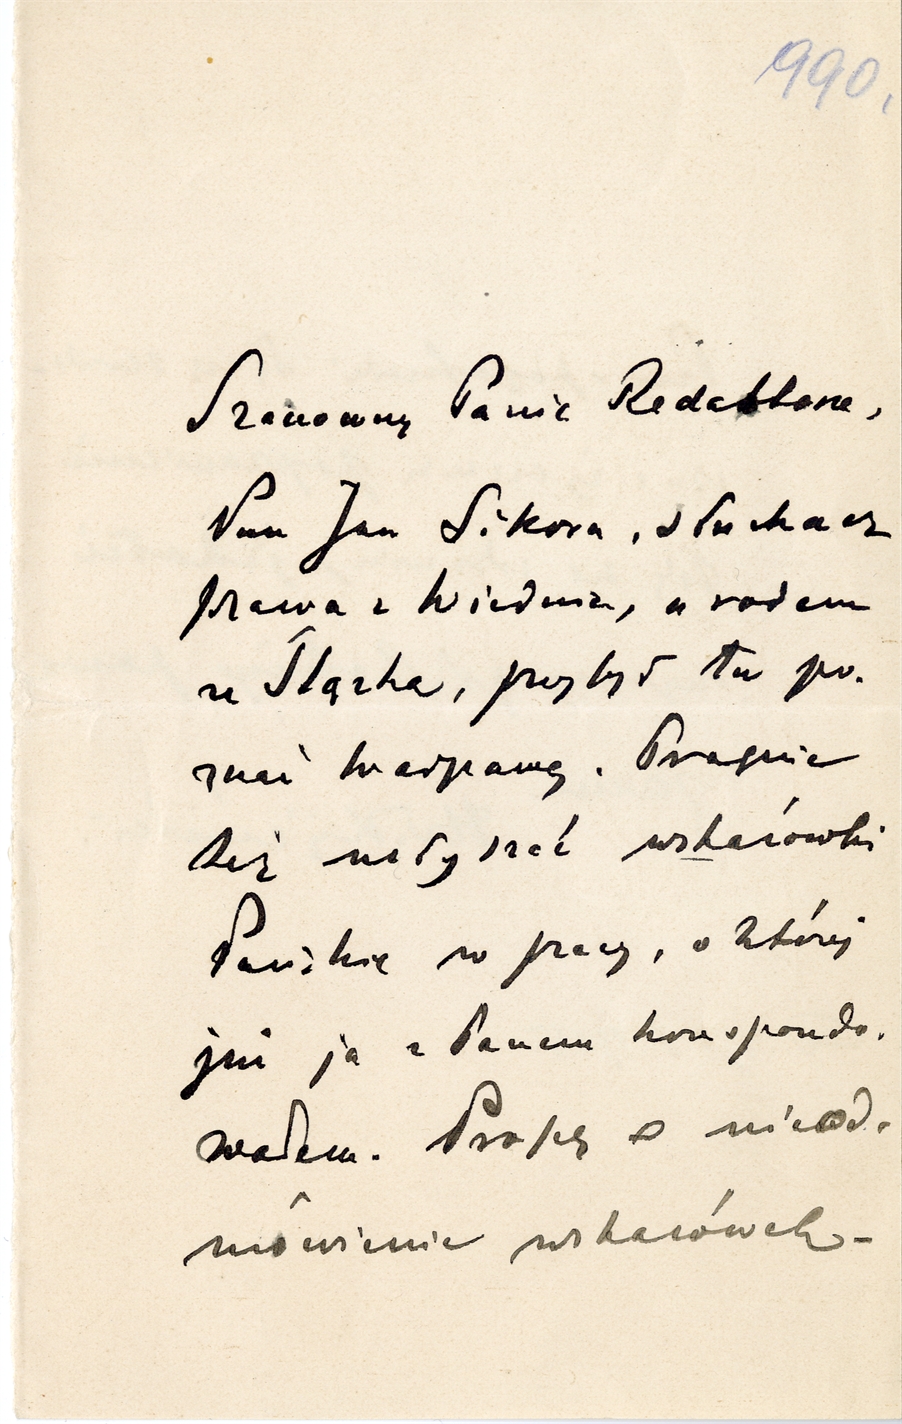 990.
Szanowny Panie Redaktorze,
Pan Jan Sikora, słuchacz
prawa z Wiednia, a rodem
ze Śląska, przybył tu po-
znać Warszawę. Pragnie
też usłyszeć wskazówki
Pańskie w pracy, o której
już ja z Panem korespondo-
wałem. Proszę o nieod-
mówienie wskazówek -